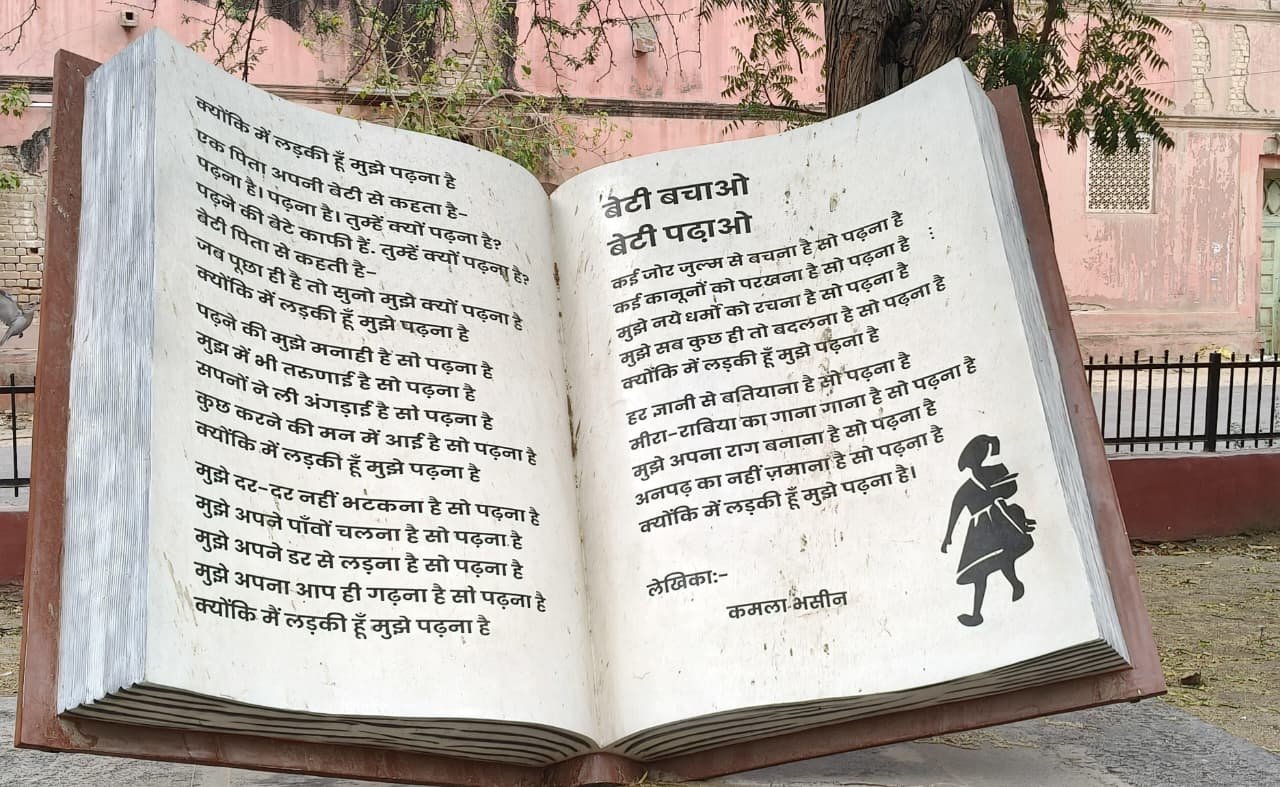 क्योंकि में लड़की हूँ मुझे पढ़ना है
एक पिता अपनी बेटी से कहता है-
पढ़ना है। पढ़ना है। तुम्हें क्यों पढ़ना है?
पढ़ने की बेटे काफी हैं. तुम्हें क्यों पढ़ना है?
बेटी पिता से कहती है-
जब पूछा ही है तो सुनो मुझे क्यों पढ़ना है
क्योंकि में लड़की हूँ मुझे पढ़ना है
पढ़ने की मुझे मनाही है सो पढ़ना है
मुझ में भी तरुणाई है सो पढ़ना है
सपनों ने ली अंगड़ाई है सो पढ़ना है
कुछ करने की मन में आई है सो पढ़ना है
क्योंकि में लड़की हूँ मुझे पढ़ना है
मुझे दर-दर नहीं भटकना है सो पढ़ना है
मुझे अपने पाँवों चलना है सो पढ़ना है
मुझे अपने डर से लड़ना है सो पढ़ना है
मुझे अपना आप ही गढ़ना है सो पढ़ना है
क्योंकि मैं लड़की हूँ मुझे पढ़ना है
बेटी बचाओ
बेटी पढ़ाओ
कई जोर जुल्म से बचना है सो पढ़ना है
कई कानूनों को परखना है सो पढ़ना है
मुझे नये धर्मो को रचना है सो पढ़ना है
मुझे सब कुछ ही तो बदलना है सो पढ़ना है
क्योंकि में लड़की हूँ मुझे पढ़ना है
हर ज्ञानी से बतियाना है सो पढ़ना है
मीरा-राबिया का गाना गाना है सो पढ़ना है
मुझे अपना राग बनाना है सो पढ़ना है
अनपढ़ का नहीं ज़माना है सो पढ़ना है
क्योंकि में लड़की हूँ मुझे पढ़ना है।
लेखिका:-
कमला भसीन